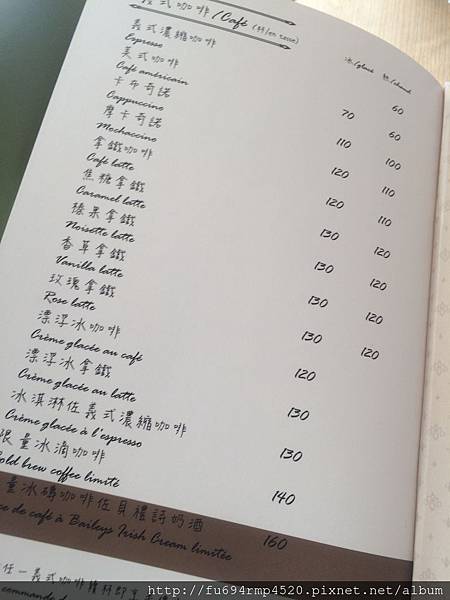 義式咖啡/Café (杯/en tasse)
冰/glacé 熱/chaud
義式濃縮咖啡 60
Espresso
美式咖啡 70 60
Café américain
卡布奇諾 110 100
Cappuccino
摩卡奇諾 120 110
Mochaccino
拿鐵咖啡 120 110
Café latte
焦糖拿鐵 130 120
Caramel latte
榛果拿鐵 130 120
Noisette latte
香草拿鐵 130 120
Vanilla latte
玫瑰拿鐵 130 120
Rose latte
漂浮冰咖啡 120
Crème glacée au café
漂浮冰拿鐵 130
Crème glacée au latte
冰淇淋佐義式濃縮咖啡 130
Crème glacée à l'espresso
限量冰滴咖啡 140
Cold brew coffee limité
量冰磚咖啡佐貝禮詩奶酒 160
de café à Baileys Irish Cream limitée
任一義式咖啡
commande
http://fu694rmp4520.pixnet.net/album